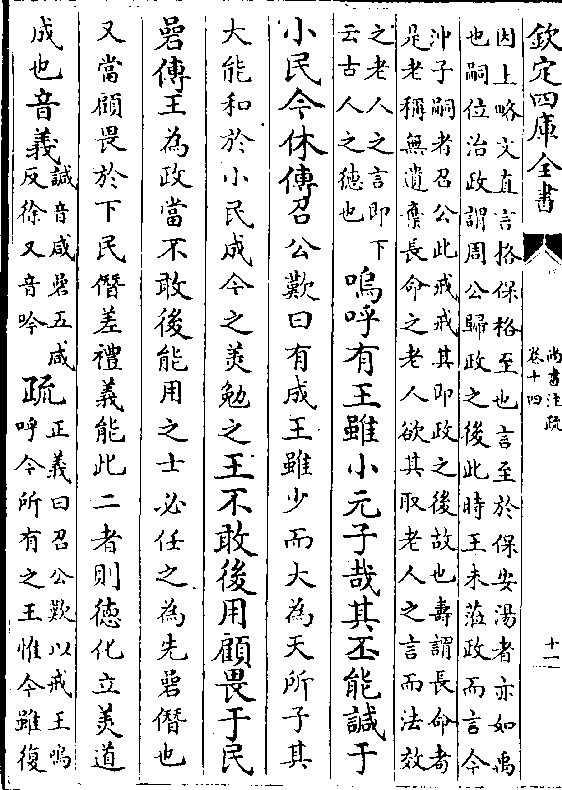 欽定四庫全書
尚書注疏
卷十四
十一
因上略文直言格保格至也言至於保安湯者亦如禹
也嗣位治政謂周公歸政之後此時王未蒞政而言今
沖子嗣者召公此戒戒其即政之後故也壽謂長命耇
是老稱無遺棄長命之老人欲其取老人之言而法效
之老人之言即下
云古人之德也
嗚呼有王雖小元子哉其丕能諴于
小民今休傳召公歎曰有成王雖少而大為天所子其
大能和於小民成今之羙勉之王不敢後用顧畏于民
碞傳王為政當不敢後能用之士必任之為先碞僭也
又當顧畏於下民僭差禮義能此二者則德化立羙道
成也音義
諴音咸碞五咸
反徐又音吟
疏
正義曰召公歎以戒王嗚
呼今所有之王惟今雖復